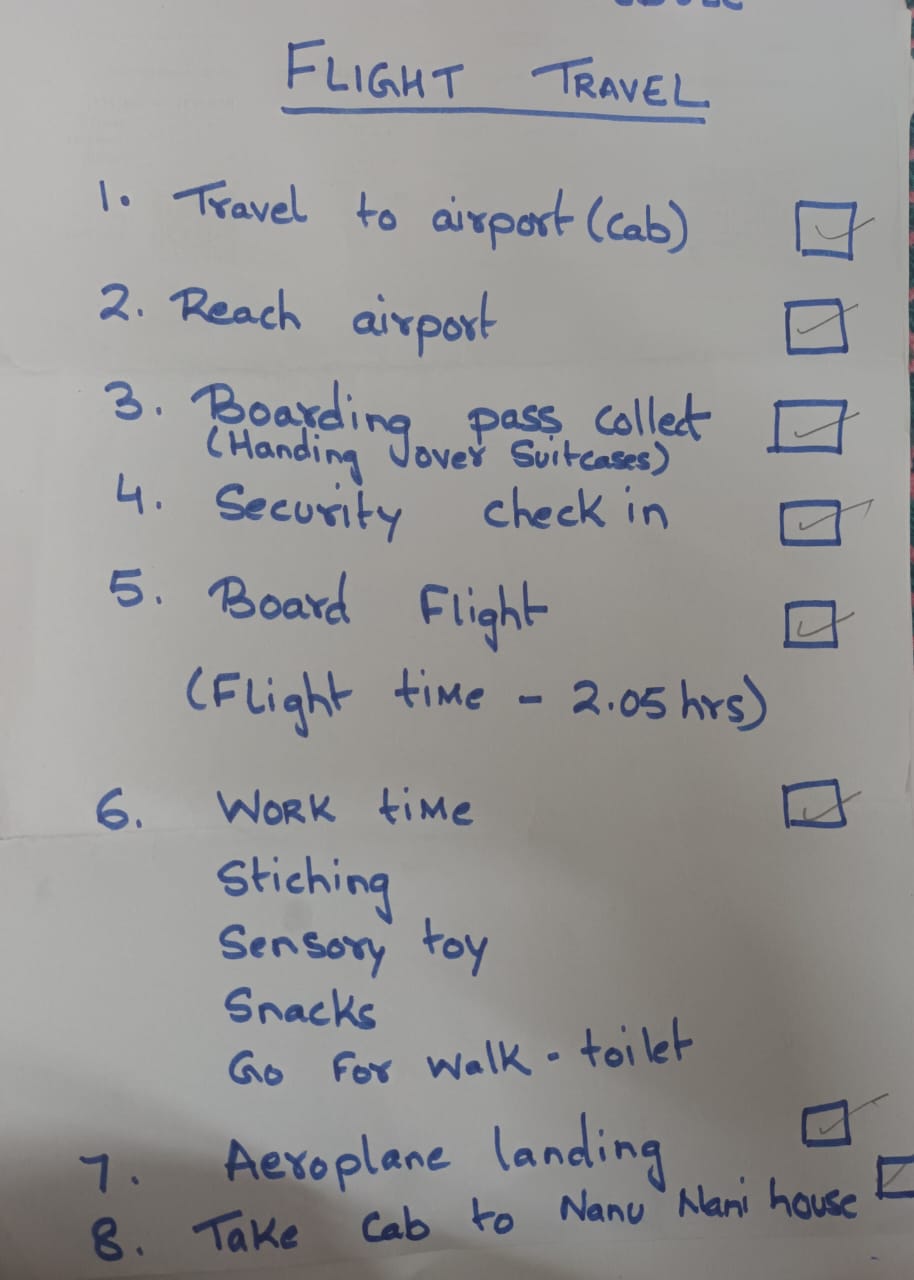 FLIGHT TRAVEL
1. Travel to airport (cab)
2. Reach airport
3. Boarding pass collect
(Handing over Suitcases)
4. Security check in
5. Board Flight
(Flight time - 2.05 hrs)
6. WORK time
Stiching
Sensory toy
Snacks
Go For walk - toilet
7. Aeroplane landing
8. Take cab to Nanu Nani house